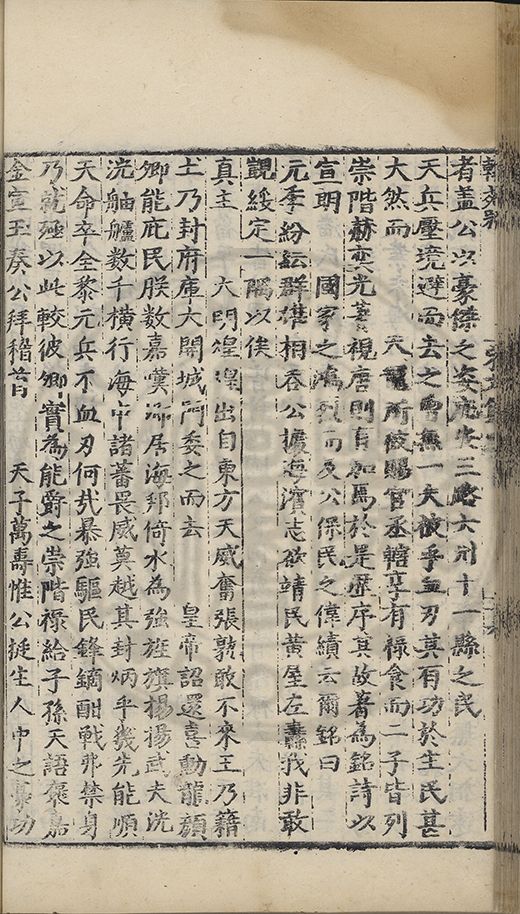 者蓋公以豪傑之姿庇安三路六州十一縣之民
天兵壓境避而去之曾無一夫被乎血刃其有功於生民甚
大然而　天寵所被賜官丞轄享有祿食而二子皆列
崇階赫奕光著視唐則有加焉於是歷序其故著為銘詩以
宣朗　國家之鴻烈而及公保民之偉績云爾銘曰
元季紛紜群雄相吞公據海濱志欲靖民黃屋左纛我非敢
覬綏定一隅以俟
真主　大明煌煌出自東方天威奮張孰敢不來王乃籍
土乃封府庫大開城門委之而去　皇帝詔還喜動龍顏
卿能庇民朕數嘉奠爾居海邦倚水為強旌旗揚揚武夫洸
洸舳艫數千橫行海中諸蕃畏威莫越其封炳乎幾先能順
天命卒全黎元兵不血刃何哉暴強驅民鋒鏑酣戰弗禁身
乃就殛以此較彼卿實為能爵之崇階祿給子孫天語褒嘉
金宣玉奏公拜稽首　天子萬壽惟公挺生人中之豪功